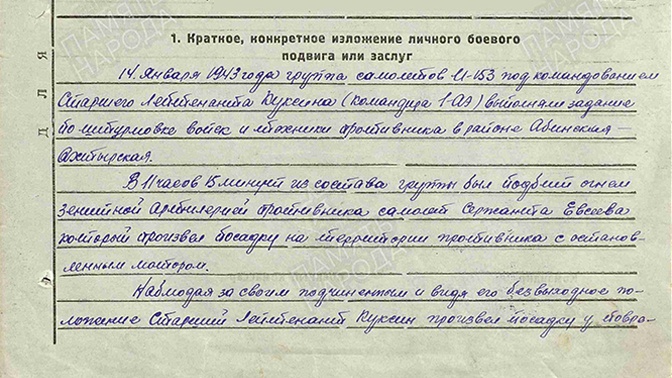 1. Краткое, конкретное изложение личного боевого
подвига или заслуг
14 Января 1943 года группа самолетов И-153 под командованием
Старшего Лейтенанта Куксина (командира 1-АЭ) выполняли задание
по штурмовке войск и техники противника в районе Абинская —
Ахтырская.
В 11 часов 15 минут из состава группы был подбит огнем
зенитной артилерией противника самолет Сержанта Евсеева
который произвел посадку на территории противника с останов-
ленным мотором.
Наблюдая за своим подчиненным и видя его безвыходное по-
ложение Старший Лейтенант Куксин произвел посадку у повре-
ДЛЯ
ПАМЯТЬ
НАРОДА